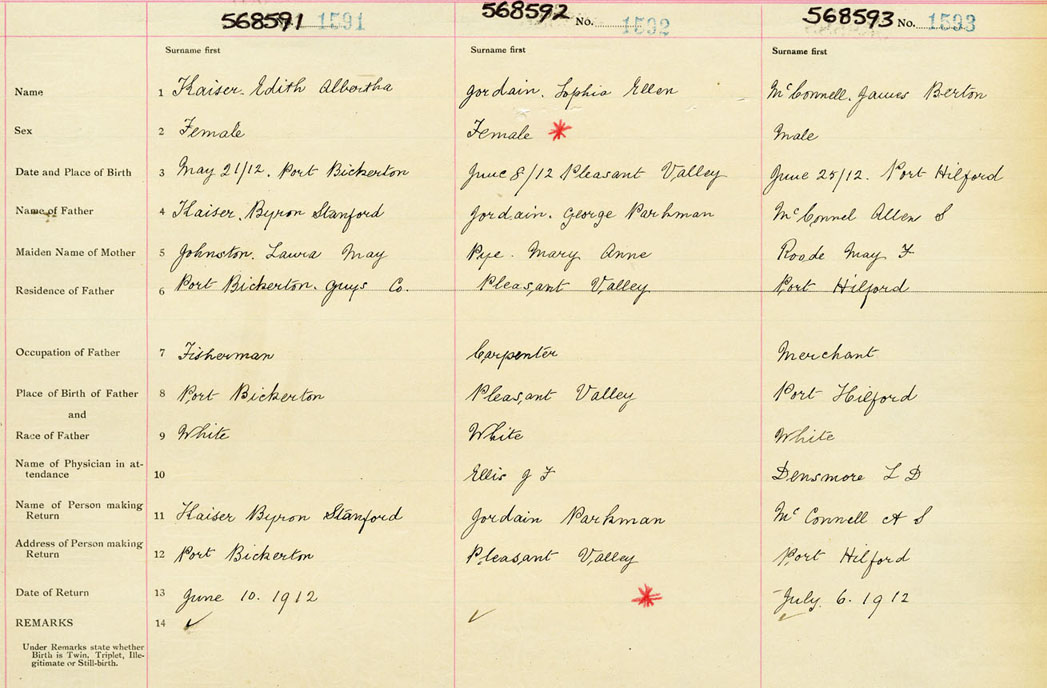 568591 1591 568592 No. 1592 568593 No. 1593
Surname first Surname first Surname first
Name 1 Kaiser. Edith Albertha Jordain. Sophia Ellen McConnell. James Berton
Sex 2 Female Female * Male
Date and Place of Birth 3 May 21/12. Port Bickerton June 8/12 Pleasant Valley June 25/12. Port Hilford
Name of Father 4 Kaiser. Byron Stanford Jordain. George Parkman McConnel Allen S
Maiden Name of Mother 5 Johnston. Laura May Pye. Mary Anne Roode May F
Residence of Father 6 Port Bickerton. Guys Co. Pleasant Valley Port Hilford
Occupation of Father 7 Fisherman Carpenter Merchant
Place of Birth of Father 8 Port Bickerton Pleasant Valley Port Hilford
and
Race of Father 9 White White White
Name of Physician in at-
tendance 10 Ellis J F Densmore L D
Name of Person making
Return 11 Kaiser Byron Stanford Jordain Parkman McConnell A S
Address of Person making
Return 12 Port Bickerton Pleasant Valley Port Hilford
Date of Return 13 June 10. 1912 * July 6. 1912
REMARKS 14 ✓ ✓ ✓
Under Remarks state whether
Birth is Twin, Triplet, Ille-
gitimate or Still-birth.